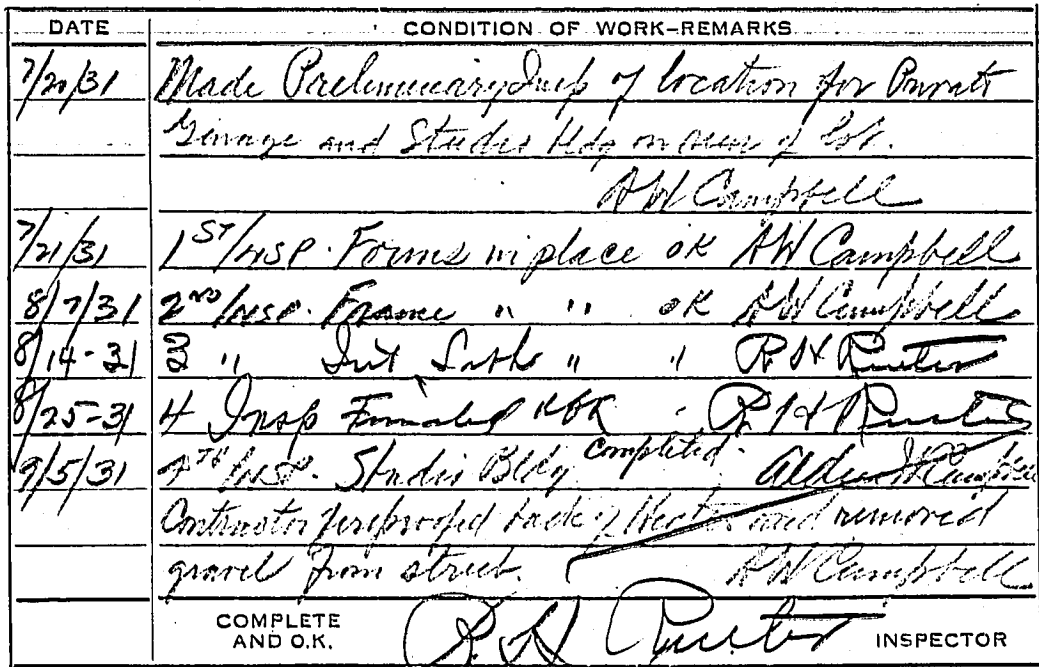 DATE CONDITION OF WORK-REMARKS
7/20/31 Made Preliminary Insp of location for Private
Garage and Studio bldg on rear of lot.
AW Campbell
7/21/31 1ST INSP. Forms in place OK AW Campbell
8/7/31 2ND INSP. Frame " " OK AW Campbell
8/14-31 3 " Int Laths " "
8/25-31 4 Insp Finished OK
9/5/31 4TH INSP. Studio Bldg Completed. Campbell
Contractor fireproofed back of Heater and removed
gravel from street. AW Campbell
COMPLETE
AND O.K. INSPECTOR